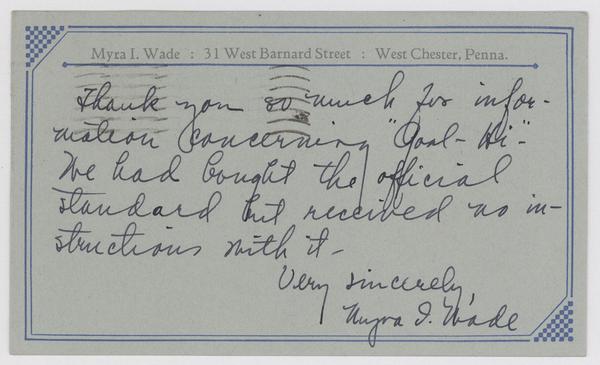 Myra I. Wade : 31 West Barnard Street : West Chester, Penna.
Thank you so much for infor-
mation concerning "Goal-Hi"-
We had bought the official
standard but received no in-
structions with it-
Very sincerely,
Myra I. Wade